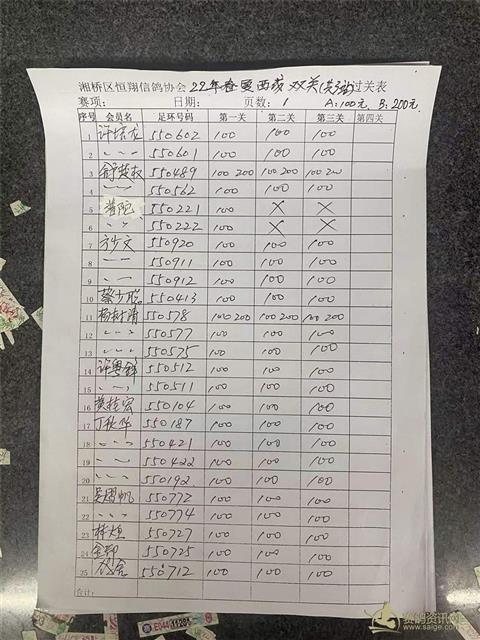 湘桥区恒翔信鸽协会22年春夏西成双关(芜强)过关表
赛项： 日期： 页数：1 A:100元 B:200元
序号 会员名 足环号码 第一关 第二关 第三关 第四关
1 许培龙 550602 100 100 100
2 〃 550601 100 100 100
3 550489 100 200 100 200 100 200
4 550562 100 100 100
5 普陀 550221 100 X X
6 〃 550222 100 X X
7 方少文 550920 100 100 100
8 〃 550911 100 100 100
9 〃 550912 100 100 100
10 蔡少聪 550413 100 100 100
11 550578 100 200 100 200 100 200
12 〃 550577 100 100 100
13 〃 550575 100 100 100
14 许粤锋 550512 100 100 100
15 〃 550511 100 100 100
16 黄桂宏 550104 100 100 100
17 丁秋华 550187 100 100 100
18 〃 550421 100 100 100
19 〃 550422 100 100 100
20 〃 550192 100 100 100
21 吴周帆 550772 100 100 100
22 〃 550774 100 100 100
23 林煜 550727 100 100 100
24 550725 100 100 100
25 550712 100 100 100
合计：
E044 11201
赛鸽资讯网
www.saige.com